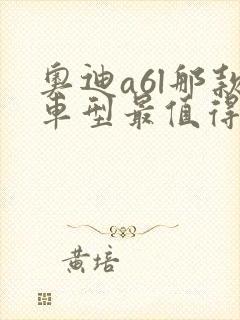 奥迪a6l那款
车型最值得
黄培